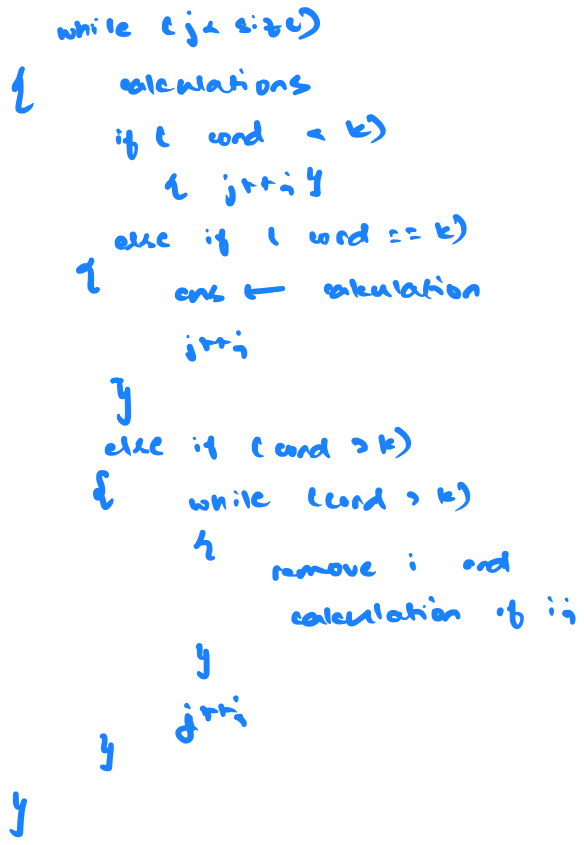 while (j < size)
{ calculations
if ( cond < k)
{ j++; }
else if ( cond == k)
{ ans ← calculation
j++;
}
else if (cond > k)
{ while (cond > k)
{
remove i and
calculation of i;
}
j++;
}
}